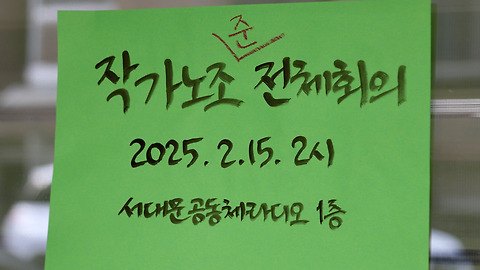 준
작가노조 전체회의
2025. 2. 15. 2시
서대문공동체라디오 1층